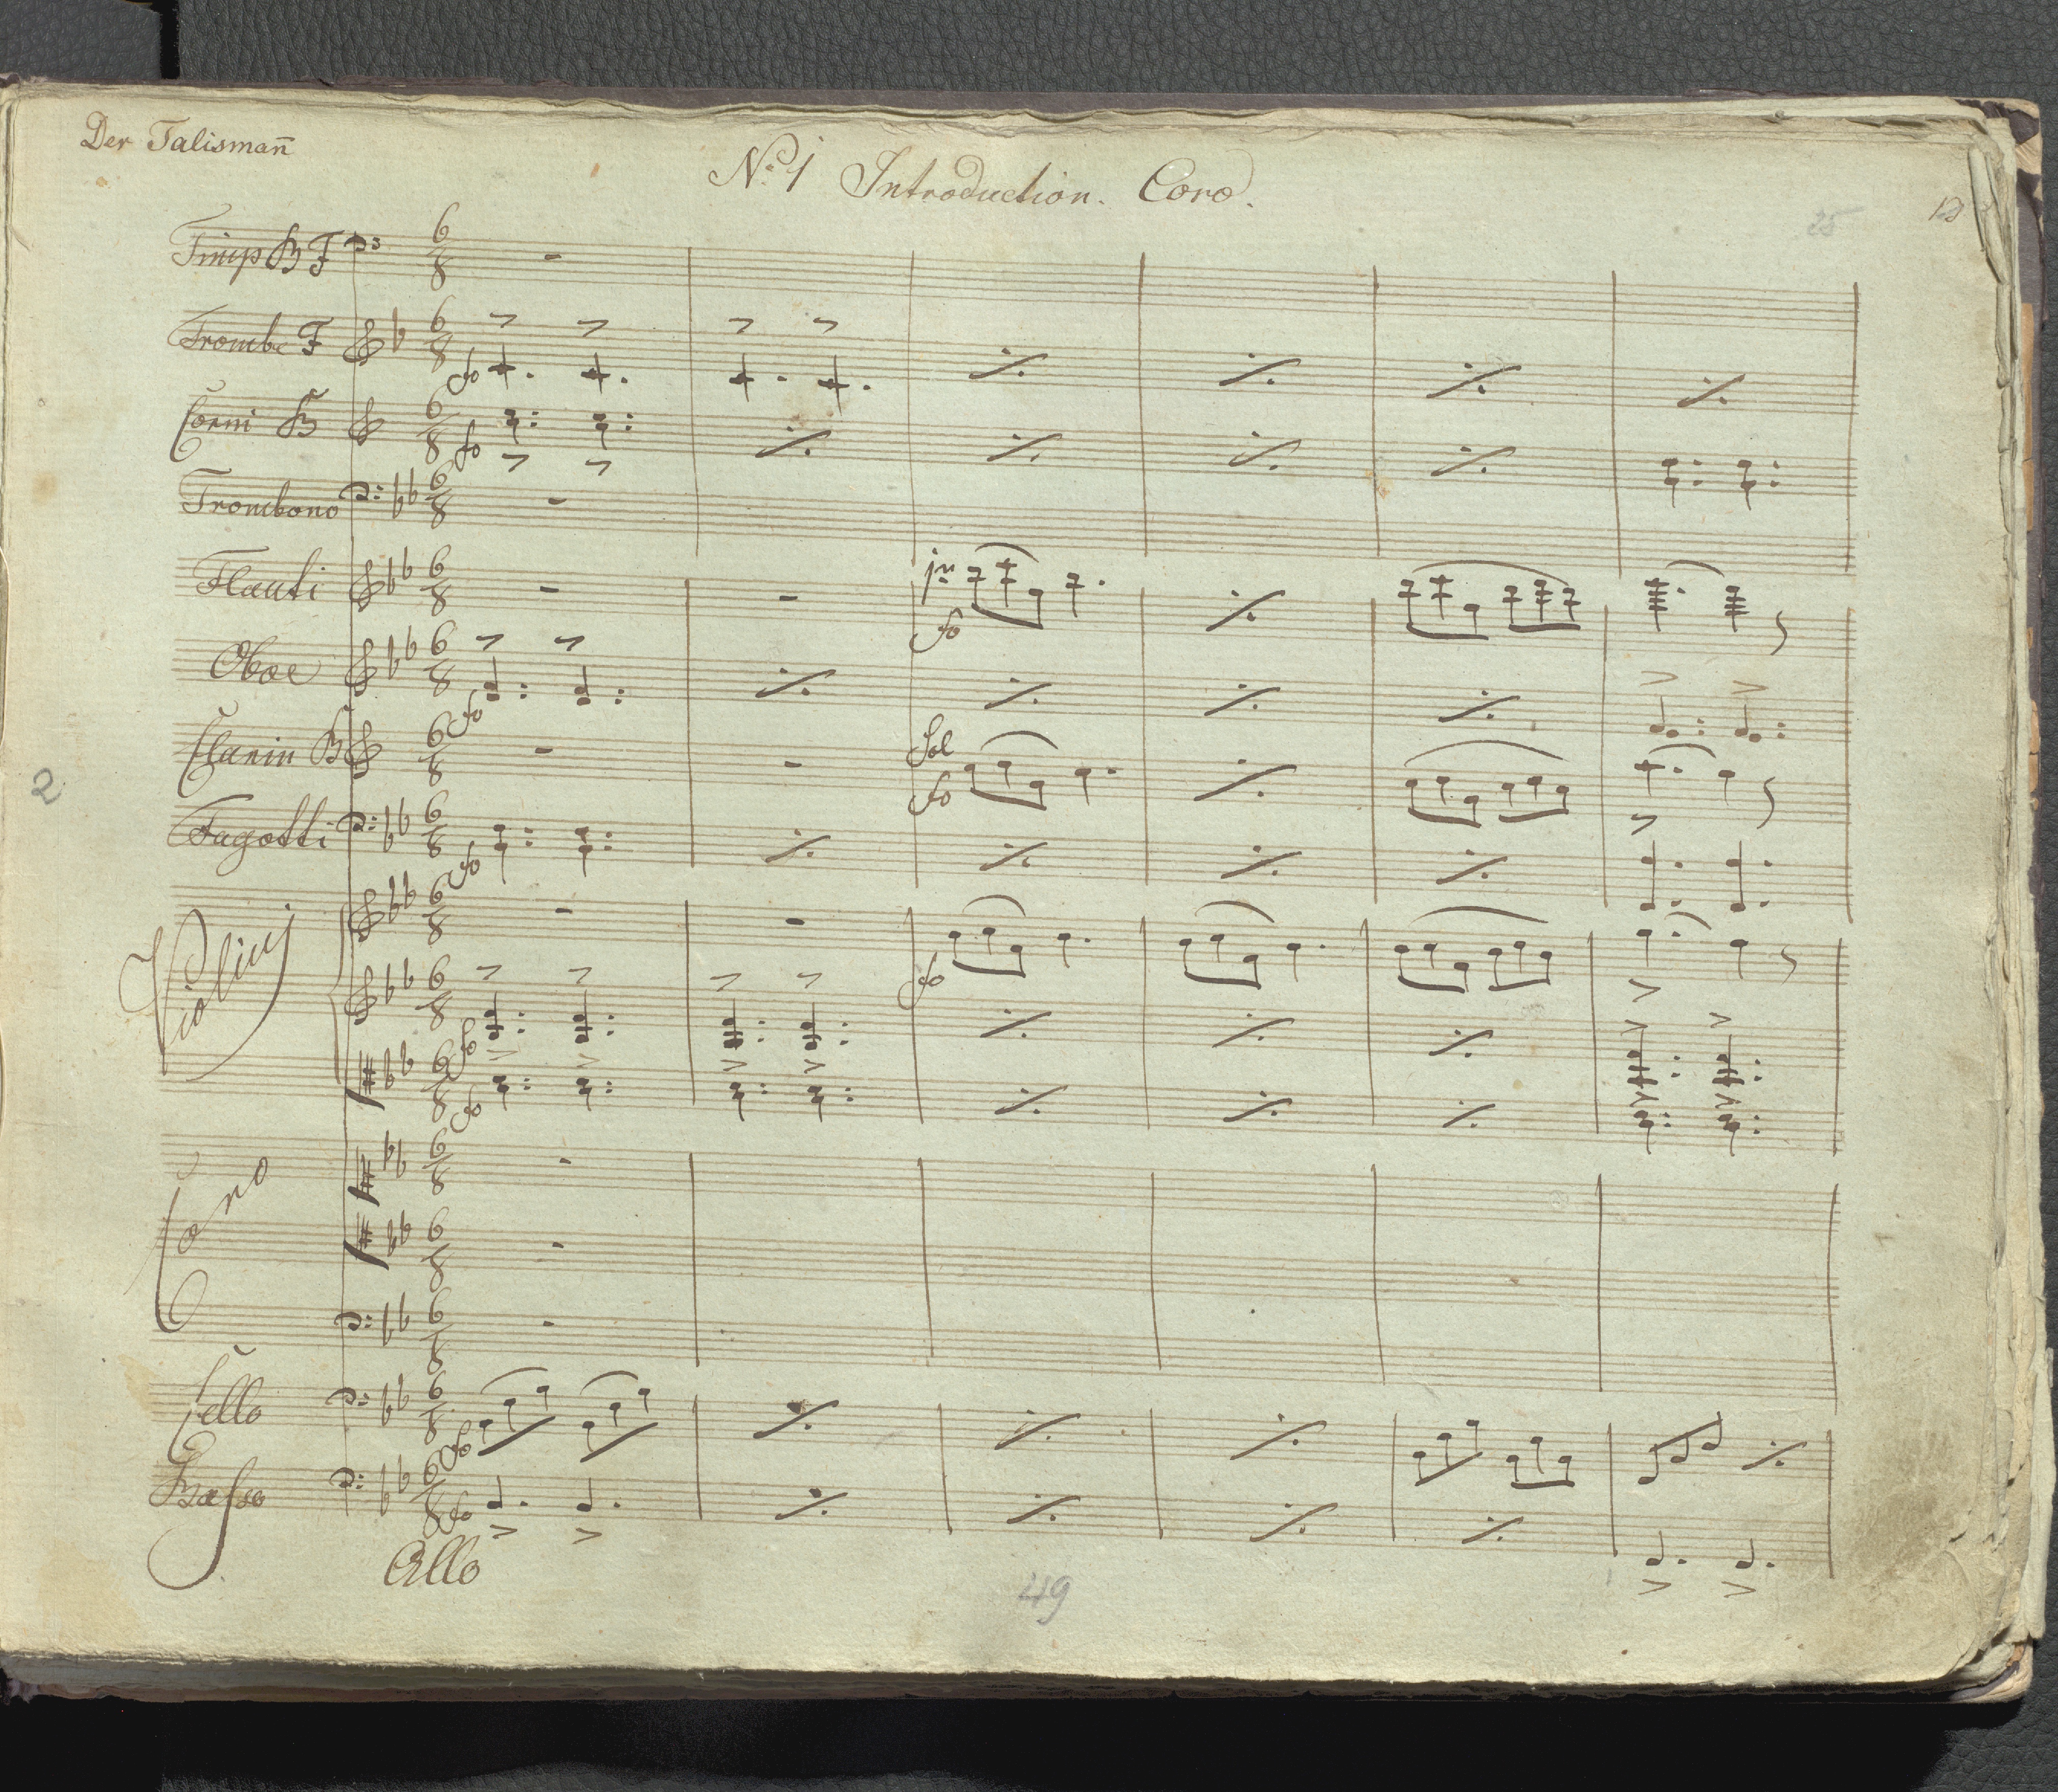 Der Talisman̄
No: 1 Introduction. Coro.
25
Timp B F
Trombe F
fo
Corni B
fo
Trombono
Flauti
fo
Oboe
fo
Clarin B
Sol
fo
2
Fagotti
fo
Violini
fo
fo
fo
Coro
Cello
fo
Basso
fo
Allo
49